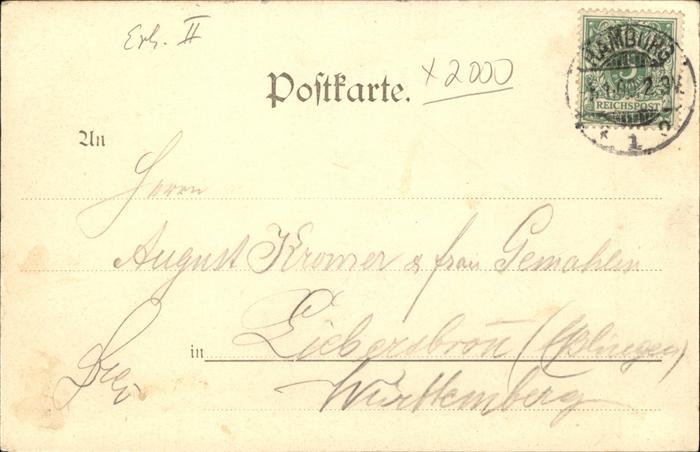 Erh. II
Postkarte.
x 2000
HAMBURG
5
REICHSPOST
1
An
Herrn
August Kromer & frau Gemahlin
in Liebersbron (Eslingen)
Württemberg